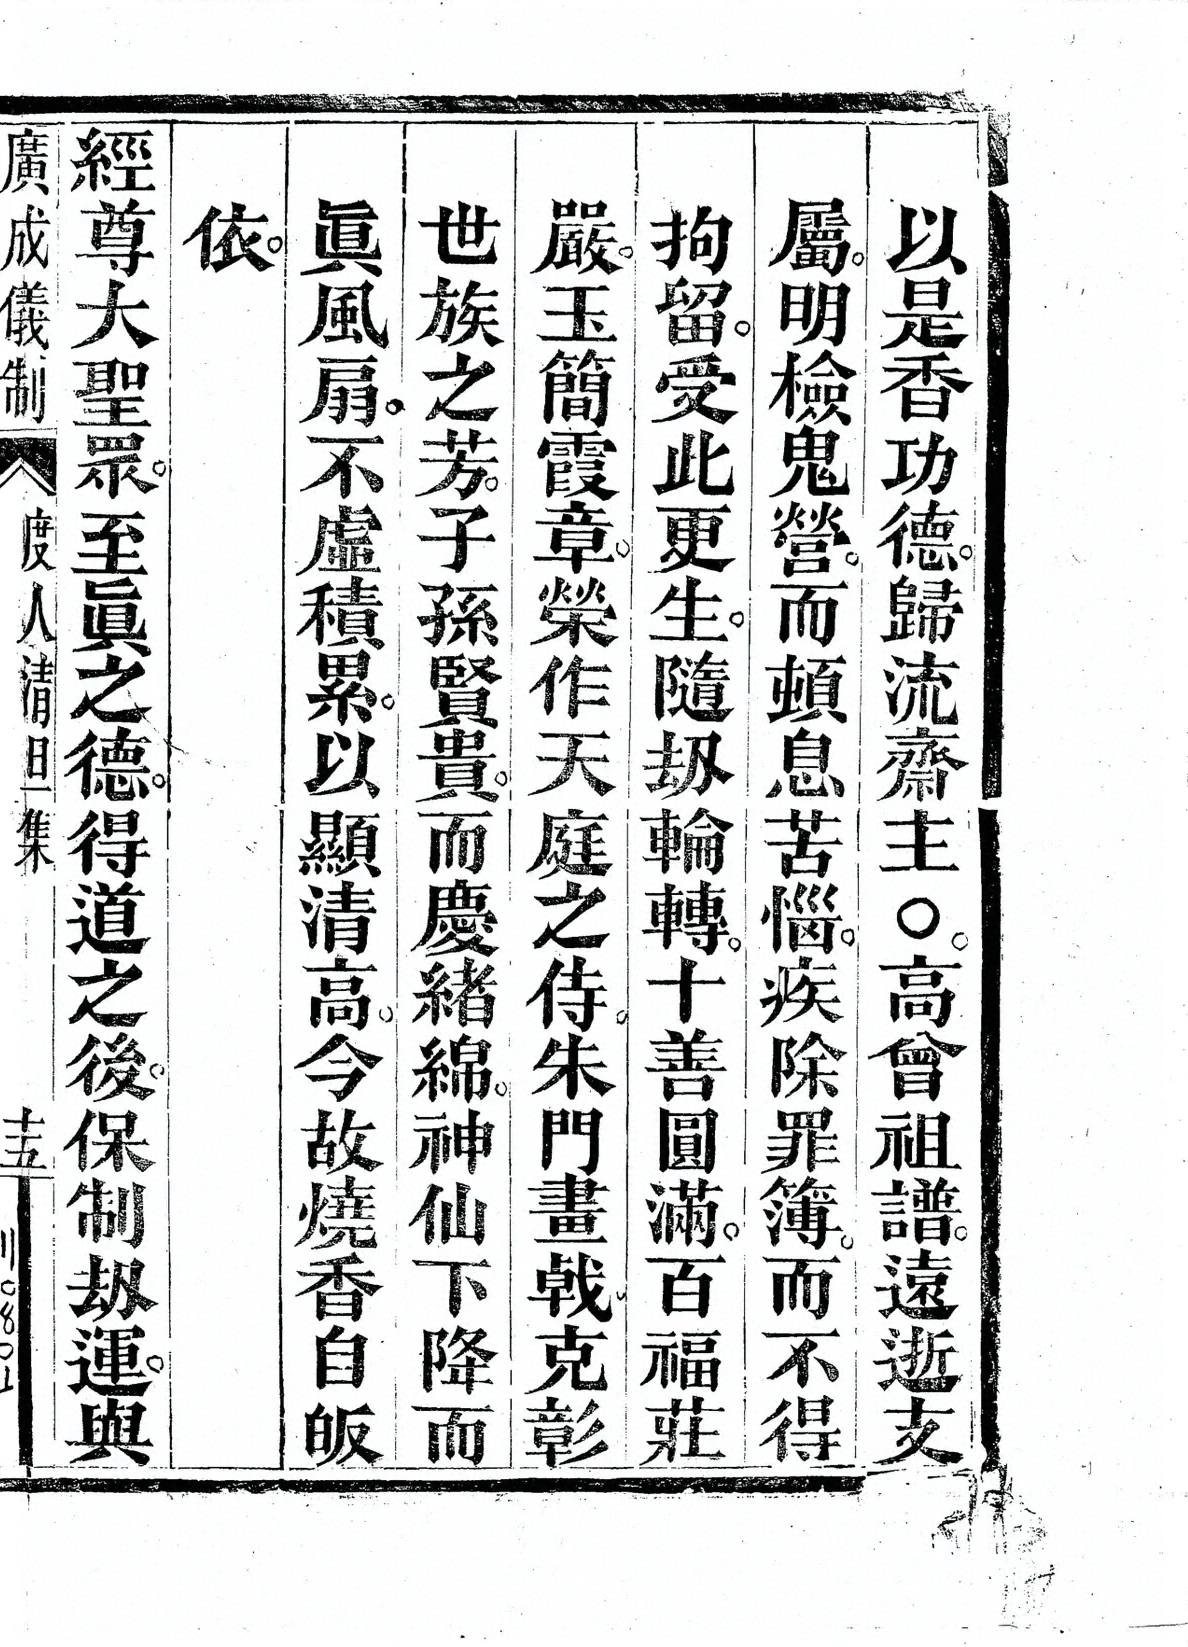 以是香功德。歸流齋主〇。高曾祖譜。遠逝支
屬。明檢鬼營。而頓息苦惱。疾除罪簿。而不得
拘留。受此更生。隨刼輪轉。十善圓滿。百福莊
嚴。玉簡霞章。榮作天庭之侍。朱門畫戟。克彰
世族之芳。子孫賢貴。而慶緒綿。神仙下降而
眞風扇。不虛積累。以顯清高。今故燒香自皈
依。
經尊大聖眾。至眞之德。得道之後。保制刼運。與
廣成儀制 度人清旦集 十五